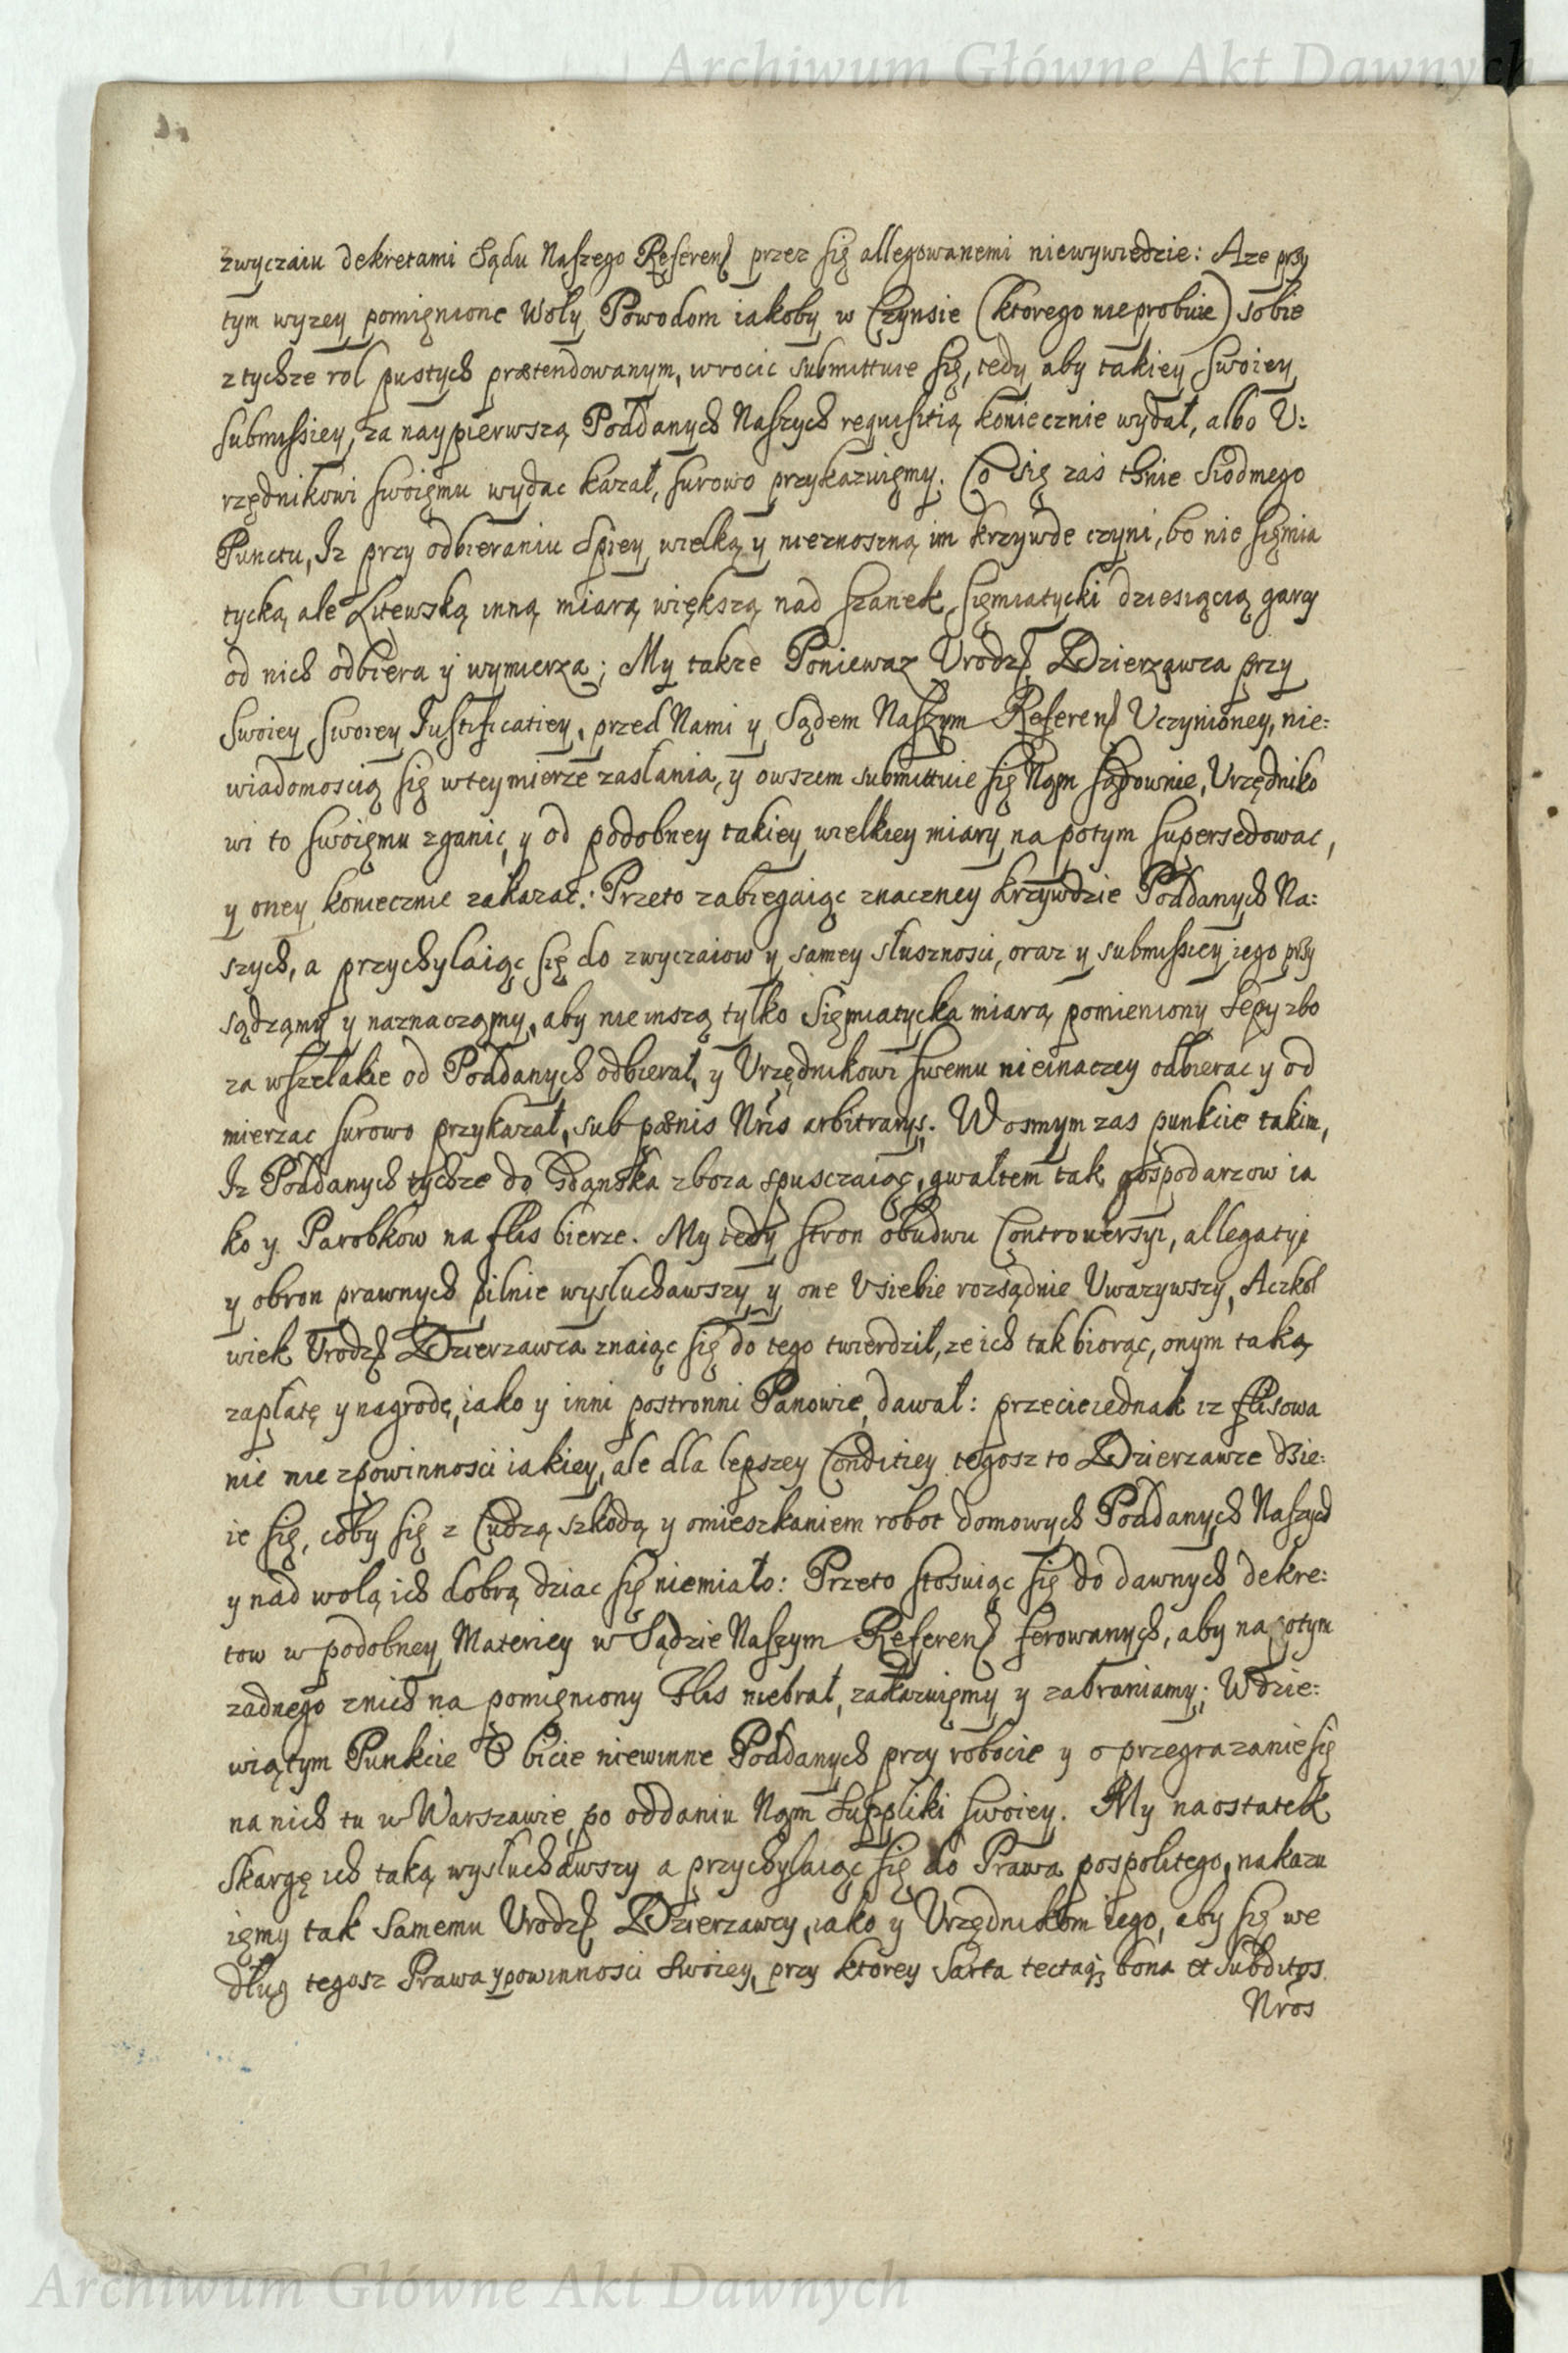 Archiwum Główne Akt Dawnych
zwyczaiu dekretami Sądu Naszego Referen przez się allegowanemi niewywiedzie: Aze przy
tym wyzey pomięnione Woły Powodom iakoby w Czynsie (ktorego nieprobuie) sobie
z tychze rol pustych prætendowanym, wrocic submittuie się, tedy aby takiey swoiey
submissiey, za naypierwszą Poddanych Naszych requisitią koniecznie wydał, albo V:
rzędnikowi swoięmu wydac kazał, surowo przykazuięmy. Co się zas tknie Siodmego
Punctu, Iz przy odbieraniu Spiey wielką y nieznoszną im krzywde czyni, bo nie Sięmia
tycką, ale Litewską inną miarą większą nad szanek Sięmiatycki dziesiącią garcy
od nich odbiera y wymierza; My takze Poniewaz Vrodz Dzierzawca przy
Swoiey Swoiey Iustificatiey, przed Nami y Sądem Naszym Referen Vczynioney, nie:
wiadomoscią się wteymierze zasłania, y owszem submittuie się Nąm sądownie, Vrzędniko
wi to swoięmu zganic, y od podobney takiey wielkiey miary na potym supersedowac,
y oney koniecznie zakazac: Przeto zabiegaiąc znaczney krzywdzie Poddanych Na:
szych, a przychylaiąc się do zwyczaiow y samey słusznosci, oraz y submissiey iego przy
sądząmy y naznaczamy, aby nieinszą tylko Sięmiatycką miarą pomieniony Sepy zbo
za wszelakie od Poddanych odbierał, y Vrzędnikowi swemu nieinaczey odbierac y od
mierzac surowo przykazał, sub pœnis Nris arbitrarijs. W osmym zas punkcie takim,
Iz Poddanych tychze do Gdąnska zboza spusczaiąc, gwałtem tak gospodarzow ia
ko y Parobkow na flis bierze. My tedy stron obudwu Controuersyi, allegatyi
y obron prawnych pilnie wysłuchawszy y one Vsiebie rozsądnie Vwazywszy, Aczkol
wiek Vrodz Dzierzawca znaiąc się do tego twierdził, ze ich tak biorąc, onym taką
zapłatę y nagrodę, iako y inni postronni Panowie, dawał: przecieiednak iz flisowa
nie nie zpowinnosci iakiey, ale dla lepszey Conditiey tegosz to Dzierzawce dzie:
ie się, coby się z Cudzą szkodą y omieszkaniem robot domowych Poddanych Naszych
y nad wolą ich dobrą dziac się niemiało: Przeto stosuiąc się do dawnych dekre:
tow w podobney Materiey w Sądzie Naszym Referen ferowanych, aby napotym
zadnego znich na pomięniony Flis niebrał, zakazuięmy y zabraniamy; W dzie:
wiątym Punkcie O bicie niewinne Poddanych przy robocie y o przegrazanie się
na nich tu w Warszawie, po oddaniu Nąm Suppliki swoiey. My naostatek
Skargę ich taką wysłuchawszy a przychylaiąc się do Prawa pospolitego, nakazu
ięmy tak samemu Vrodz Dzierzawcy, iako y Vrzędnikom iego, aby się we
dług tegosz Prawa ypowinnosci Swoiey, przy ktorey Sarta tectaq; bona et Subditos
Nros
Archiwum Główne Akt Dawnych